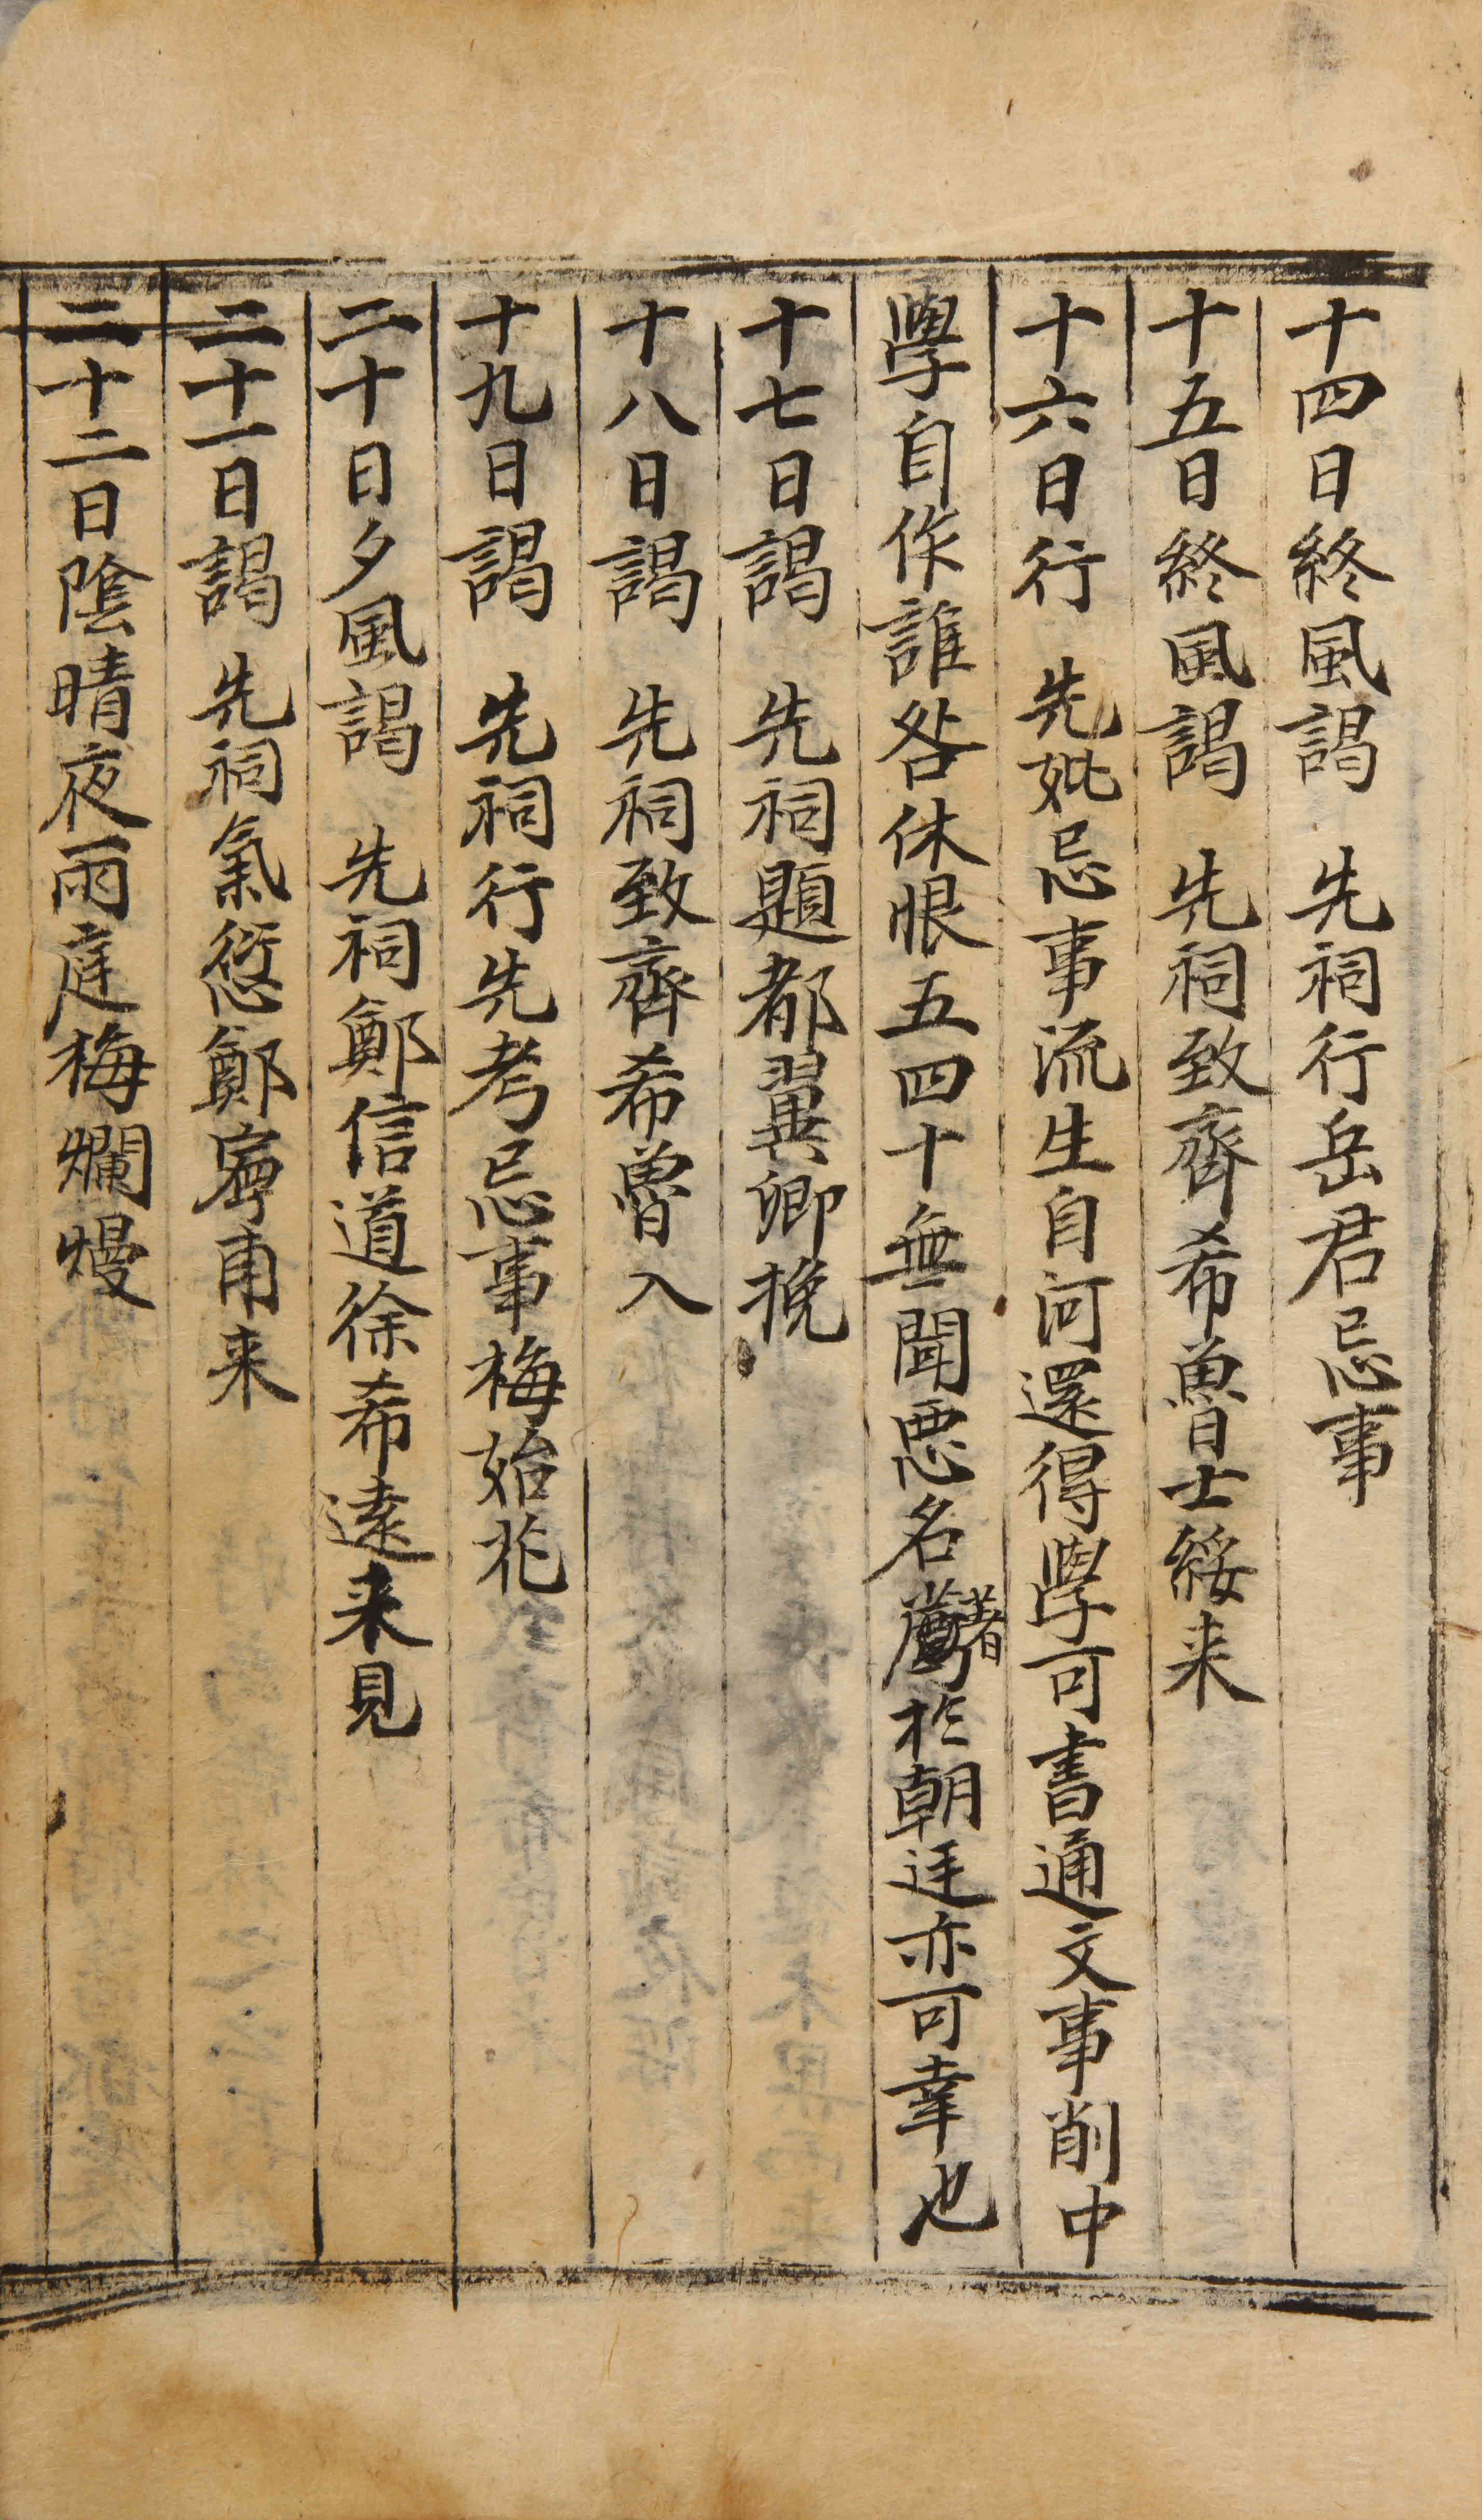 十四日終風謁　先祠行岳君忌事
十五日終風謁　先祠致齊希魯士綏来
十六日行　先妣忌事流生自河還得學可書通文事削中
學自作誰咎休恨五四十無聞惡名著於朝廷亦可幸也
十七日謁　先祠題都翼卿挽
十八日謁　先祠致齊希魯入
十九日謁　先祠行先考忌事梅始花
二十日夕風謁　先祠鄭信道徐希遠来見
二十一日謁　先祠氣愆鄭寧甫来
二十二日陰晴夜雨庭梅爛熳